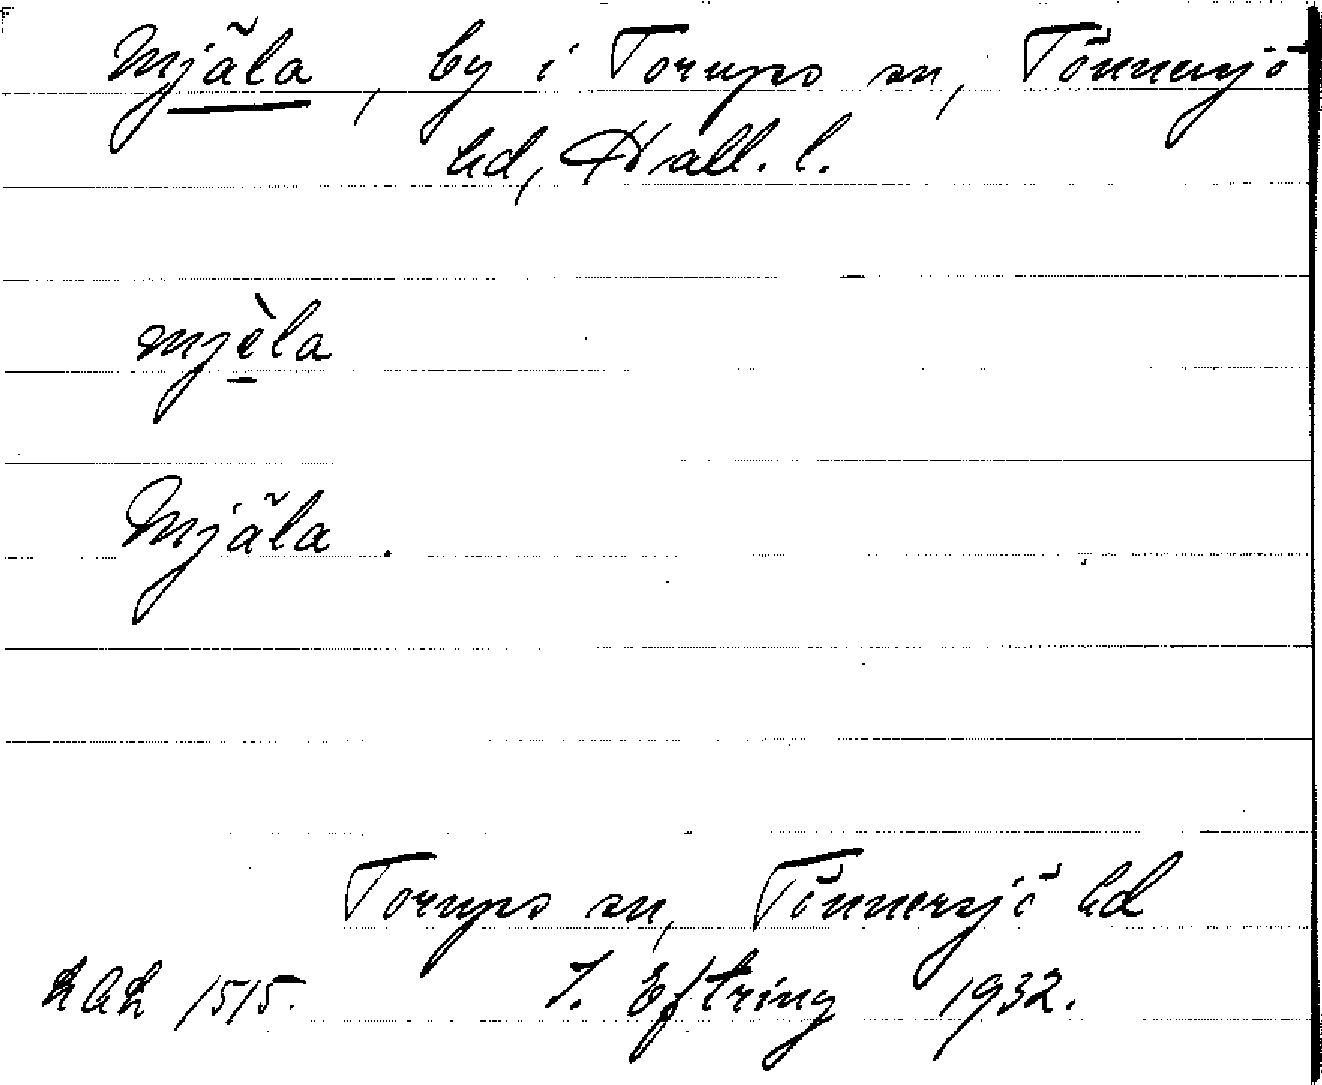 Mjäla, by i Torups sn, Tönnersjö
hd, Hall. l.
mjèla
Mjäla.
Torups sn, Tönnersjö hd
1515. I. Eftring 1932.